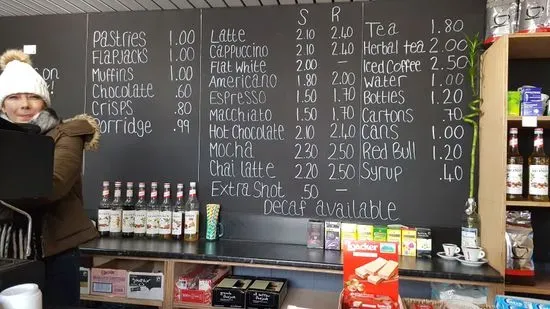 on
Pastries 1.00
Flapjacks 1.00
Muffins 1.00
Chocolate .60
Crisps .80
Porridge .99
S R
Latte 2.10 2.40
Cappuccino 2.10 2.40
Flat White 2.00 —
Americano 1.80 2.00
Espresso 1.50 1.70
Macchiato 1.50 1.70
Hot Chocolate 2.10 2.40
Mocha 2.30 2.50
Chai latte 2.20 2.50
Extra Shot 50 —
Decaf available
Tea 1.80
Herbal tea 2.00
Iced Coffee 2.50
Water 1.00
Bottles 1.20
Cartons .70
Cans 1.00
Red Bull 1.20
Syrup .40
Loacker